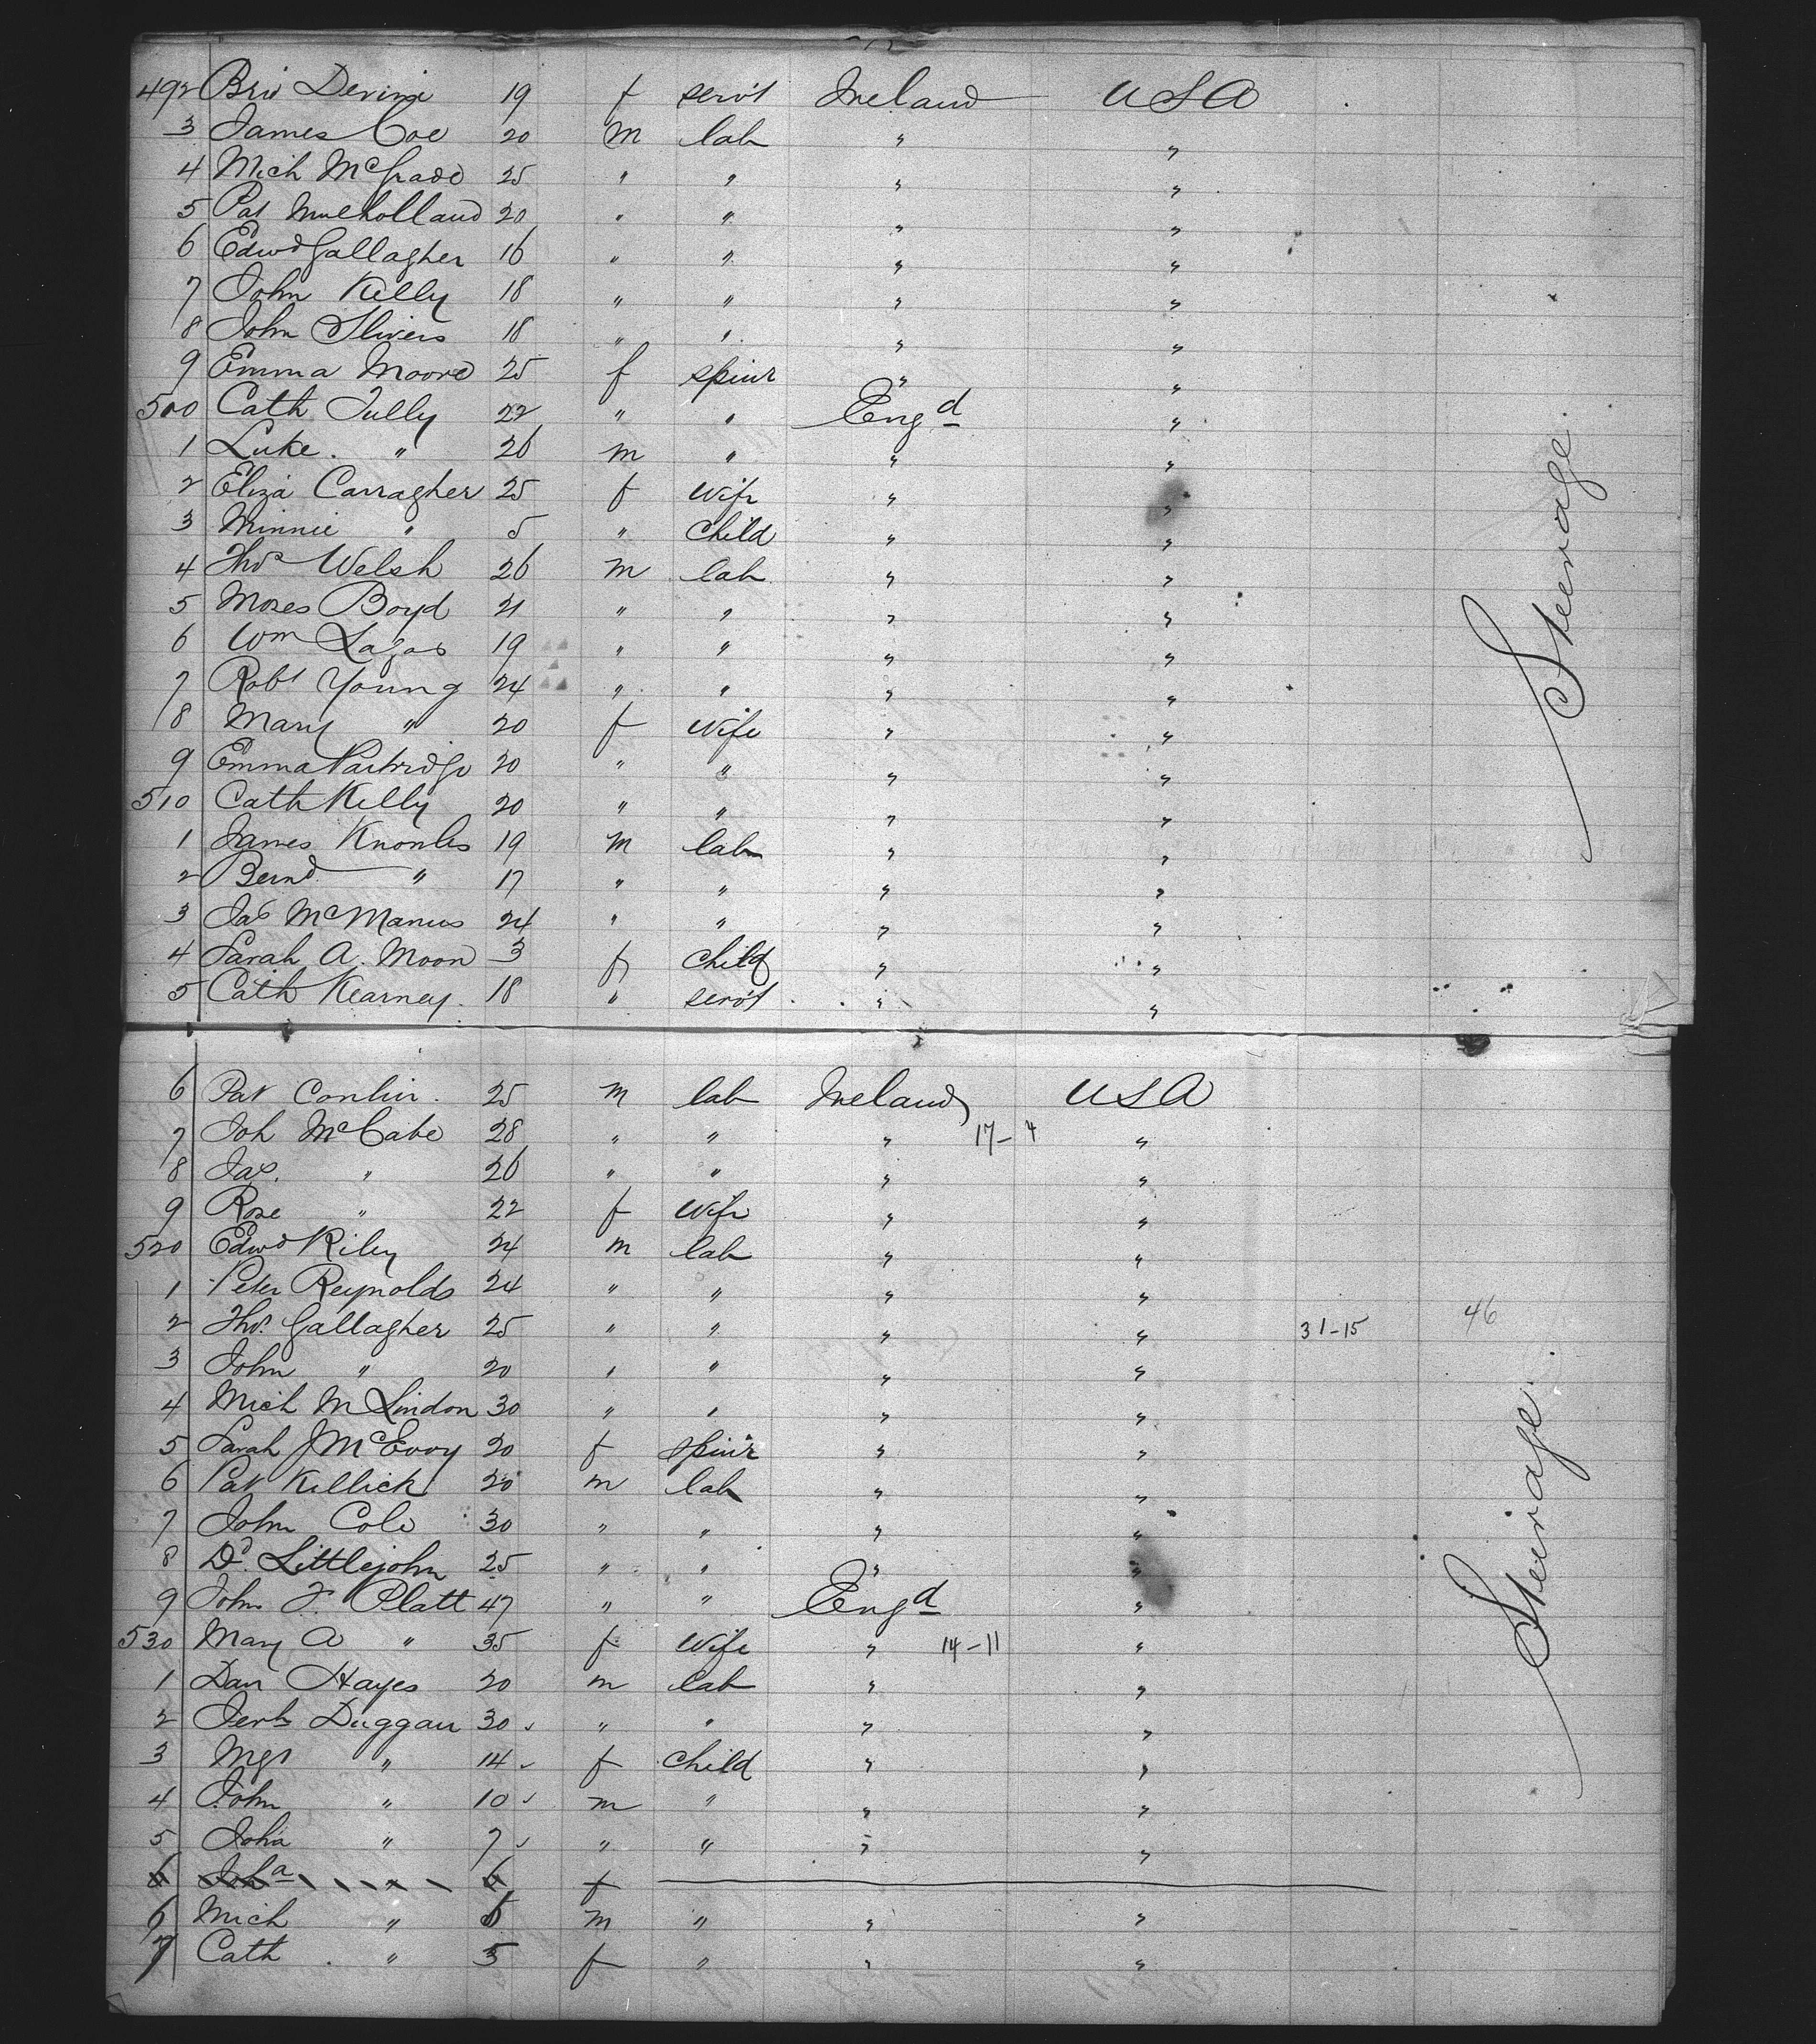 492 Devine 19 f serv't Ireland USA
3 James Coe 20 m lab " "
4 Mich McGrade 25 " " " "
5 Pat Mulholland 20 " " " "
6 Edwd Gallagher 16 " " " "
7 John Kelly 18 " " " "
8 John Slivers 18 " " " "
9 Emma Moore 25 f spinr " "
500 Cath Tully 22 " " Engd "
1 Luke " 26 m " " "
2 Eliza Carragher 25 f wife " "
3 Minnie " 5 " child " "
4 Thos Welsh 26 m lab " "
5 Moses Boyd 21 " " " "
6 Wm 19 " " " "
7 Robt Young 24 " " " "
8 Mary " 20 f wife " "
9 Emma Partridge 20 " " " "
510 Cath Kelly 20 " " " "
1 James Knowles 19 m lab " "
2 Bernd " 17 " " " "
3 Jas McManus 24 " " " "
4 Sarah A. Moon 3 f child " "
5 Cath Kearney. 18 " serv't " "
Steerage
6 Pat Conlin. 25 m lab Ireland USA
7 Joh McCabe 28 " " " 17-4 "
8 Jas. " 26 " " " "
9 Rose " 22 f wife " "
520 Edwd Riley 24 m lab " "
1 Peter Reynolds 24 " " " "
2 Thos. Gallagher 25 " " " " 31-15 46
3 John " 20 " " " "
4 Mich M Lindon 30 " " " "
5 Sarah J McEvoy 20 f spinr " "
6 Pat Killick 20 m lab " "
7 John Cole 30 " " " "
8 Dd. Littlejohn 25 " " " "
9 John F. Platt 47 " " Engd "
530 Mary A " 35 f wife " 14-11 "
1 Dan Hayes 20 m lab " "
2 Jerh Duggan 30 " " " "
3 Mgt " 14 f child " "
4 John " 10 m " " "
5 Joha " 7 " " " "
6 Joha " 6 f
6 Mich " 6 m " " "
7 Cath " 5 f " " "
Steerage